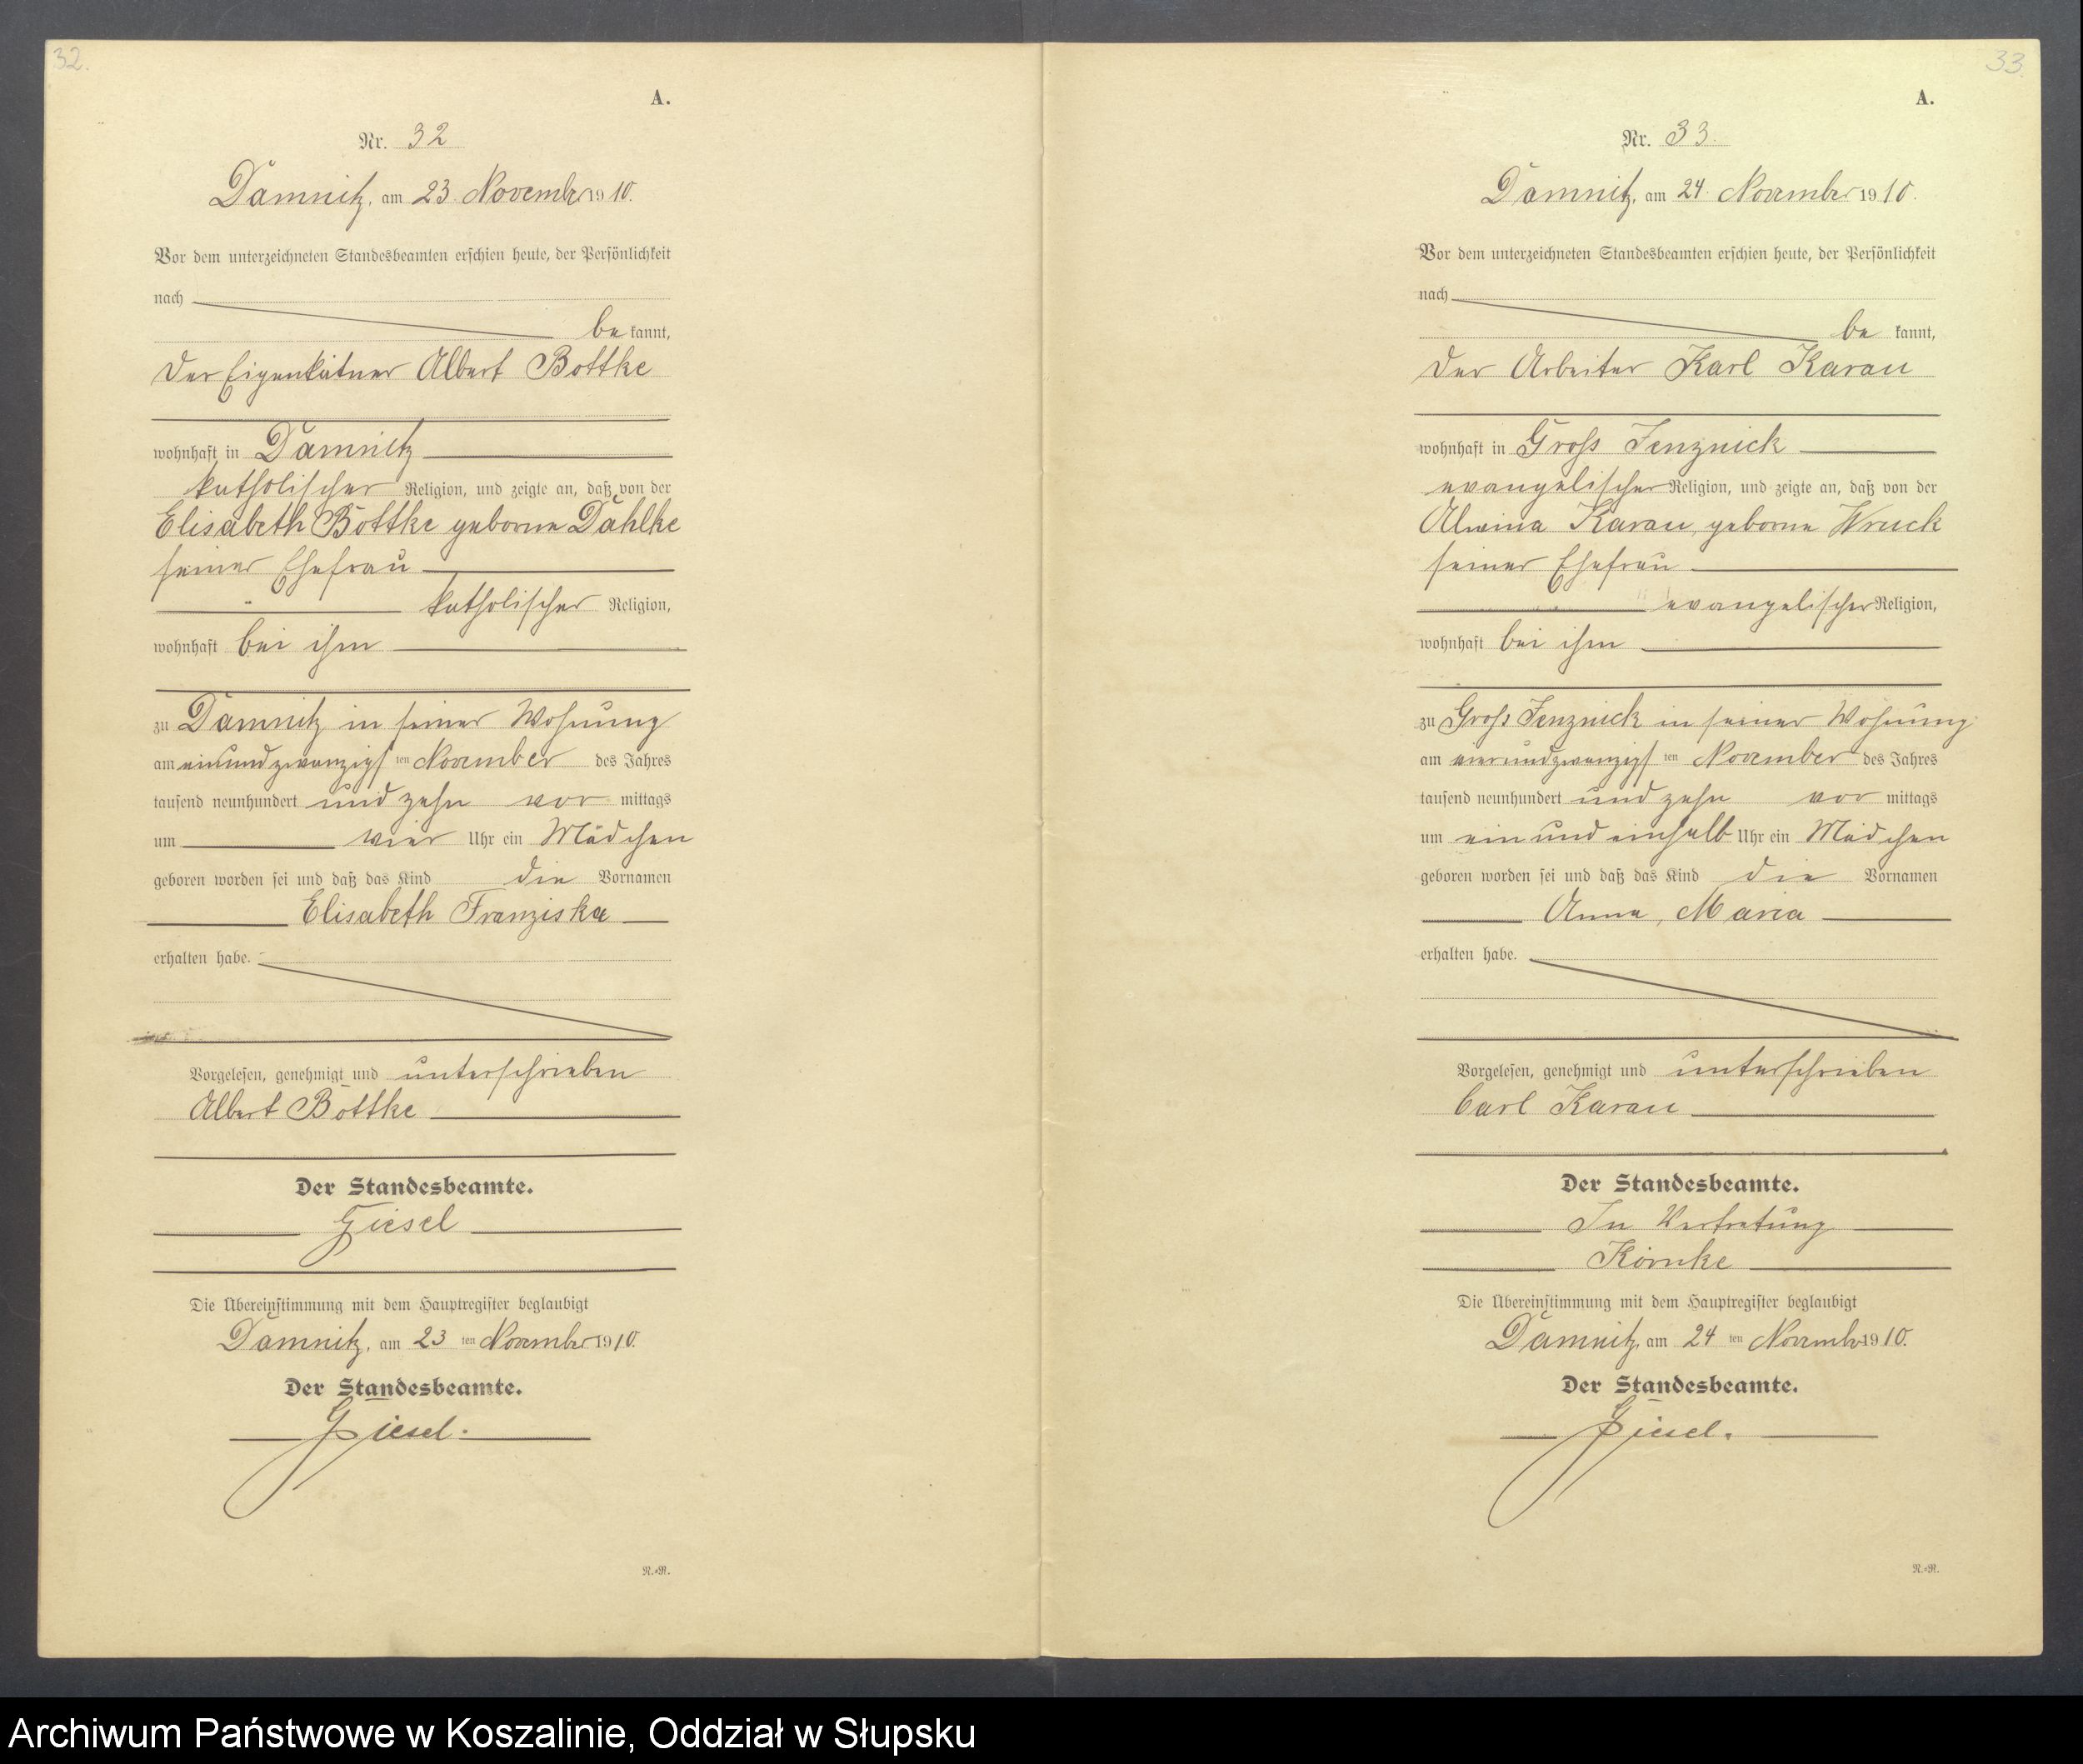 32.
A.
Nr. 32
Damnitz, am 23. November 1910.
Vor dem unterzeichneten Standesbeamten erschien heute, der Persönlichkeit
nach
be kannt,
der Eigenkätner Albert Bottke
wohnhaft in Damnitz
katholischer Religion, und zeigte an, daß von der
Elisabeth Bottke geborne Dahlke
seiner Ehefrau
katholischer Religion,
wohnhaft bei ihm
zu Damnitz in seiner Wohnung
am einundzwanzigsten November des Jahres
tausend neunhundert und zehn vor mittags
um vier Uhr ein Mädchen
geboren worden sei und daß das Kind die Vornamen
Elisabeth Franziska
erhalten habe.
Vorgelesen, genehmigt und unterschrieben
Albert Bottke
Der Standesbeamte.
Giesel
Die Übereinstimmung mit dem Hauptregister beglaubigt
Damnitz, am 23 ten November 1910.
Der Standesbeamte.
Giesel.
R.-R.
33.
A.
Nr. 33.
Damnitz, am 24. November 1910.
Vor dem unterzeichneten Standesbeamten erschien heute, der Persönlichkeit
nach
be kannt,
der Arbeiter Karl Karau
wohnhaft in Gross Jenznick
evangelischer Religion, und zeigte an, daß von der
Alwina Karau, geborne Wruck
seiner Ehefrau
evangelischer Religion,
wohnhaft bei ihm
zu Gross Jenznick in seiner Wohnung
am vierundzwanzigsten November des Jahres
tausend neunhundert und zehn vor mittags
um ein und einhalb Uhr ein Mädchen
geboren worden sei und daß das Kind die Vornamen
Anna, Maria
erhalten habe.
Vorgelesen, genehmigt und unterschrieben
Carl Karau
Der Standesbeamte.
In Vertretung
Körnke
Die Übereinstimmung mit dem Hauptregister beglaubigt
Damnitz, am 24 ten November 1910.
Der Standesbeamte.
Giesel.
R.-R.
Archiwum Państwowe w Koszalinie, Oddział w Słupsku